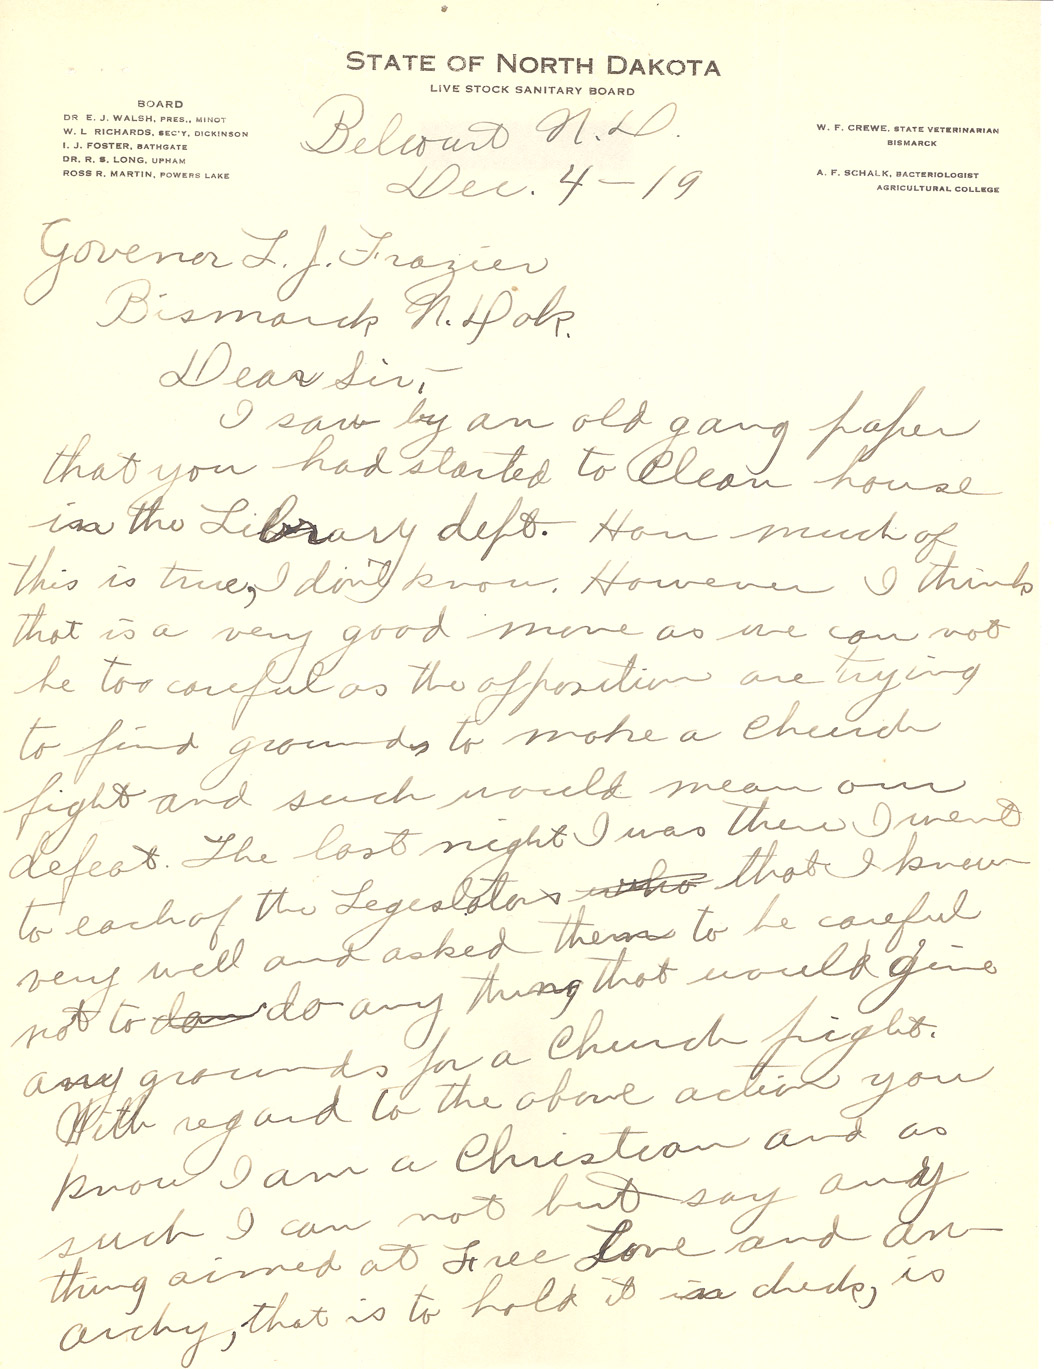 STATE OF NORTH DAKOTA
LIVE STOCK SANITARY BOARD
BOARD
DR E. J. WALSH, PRES., MINOT
W. L RICHARDS, SEC'Y, DICKINSON
I. J. FOSTER, BATHGATE
DR. R. S. LONG, UPHAM
ROSS R. MARTIN, POWERS LAKE
W. F. CREWE, STATE VETERINARIAN
BISMARCK
A. F. SCHALK, BACTERIOLOGIST
AGRICULTURAL COLLEGE
Belcourt N. D.
Dec. 4-19
Govenor L. J. Frazier
Bismarck N. Dak.
Dear Sir,-
I saw by an old gang paper
that you had started to Clean house
in the Library dept. How much of
this is true, I don't know. However I think
that is a very good move as we can not
be too careful as the opposition are trying
to find grounds to make a Church
fight and such would mean our
defeat. The last night I was there I went
to each of the Legeslators who that I knew
very well and asked them to be careful
not to do any thing that would give
any grounds for a Church fight.
With regard to the above action you
know I am a Christian and as
such I can not but say any
thing aimed at Free Love and an-
archy, that is to hold it in check, is